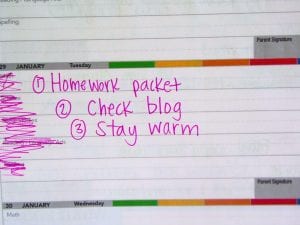 Spelling
Parent Signature
29 JANUARY Tuesday
① Homework packet
② Check blog
③ Stay warm
Parent Signature
30 JANUARY Wednesday
Math